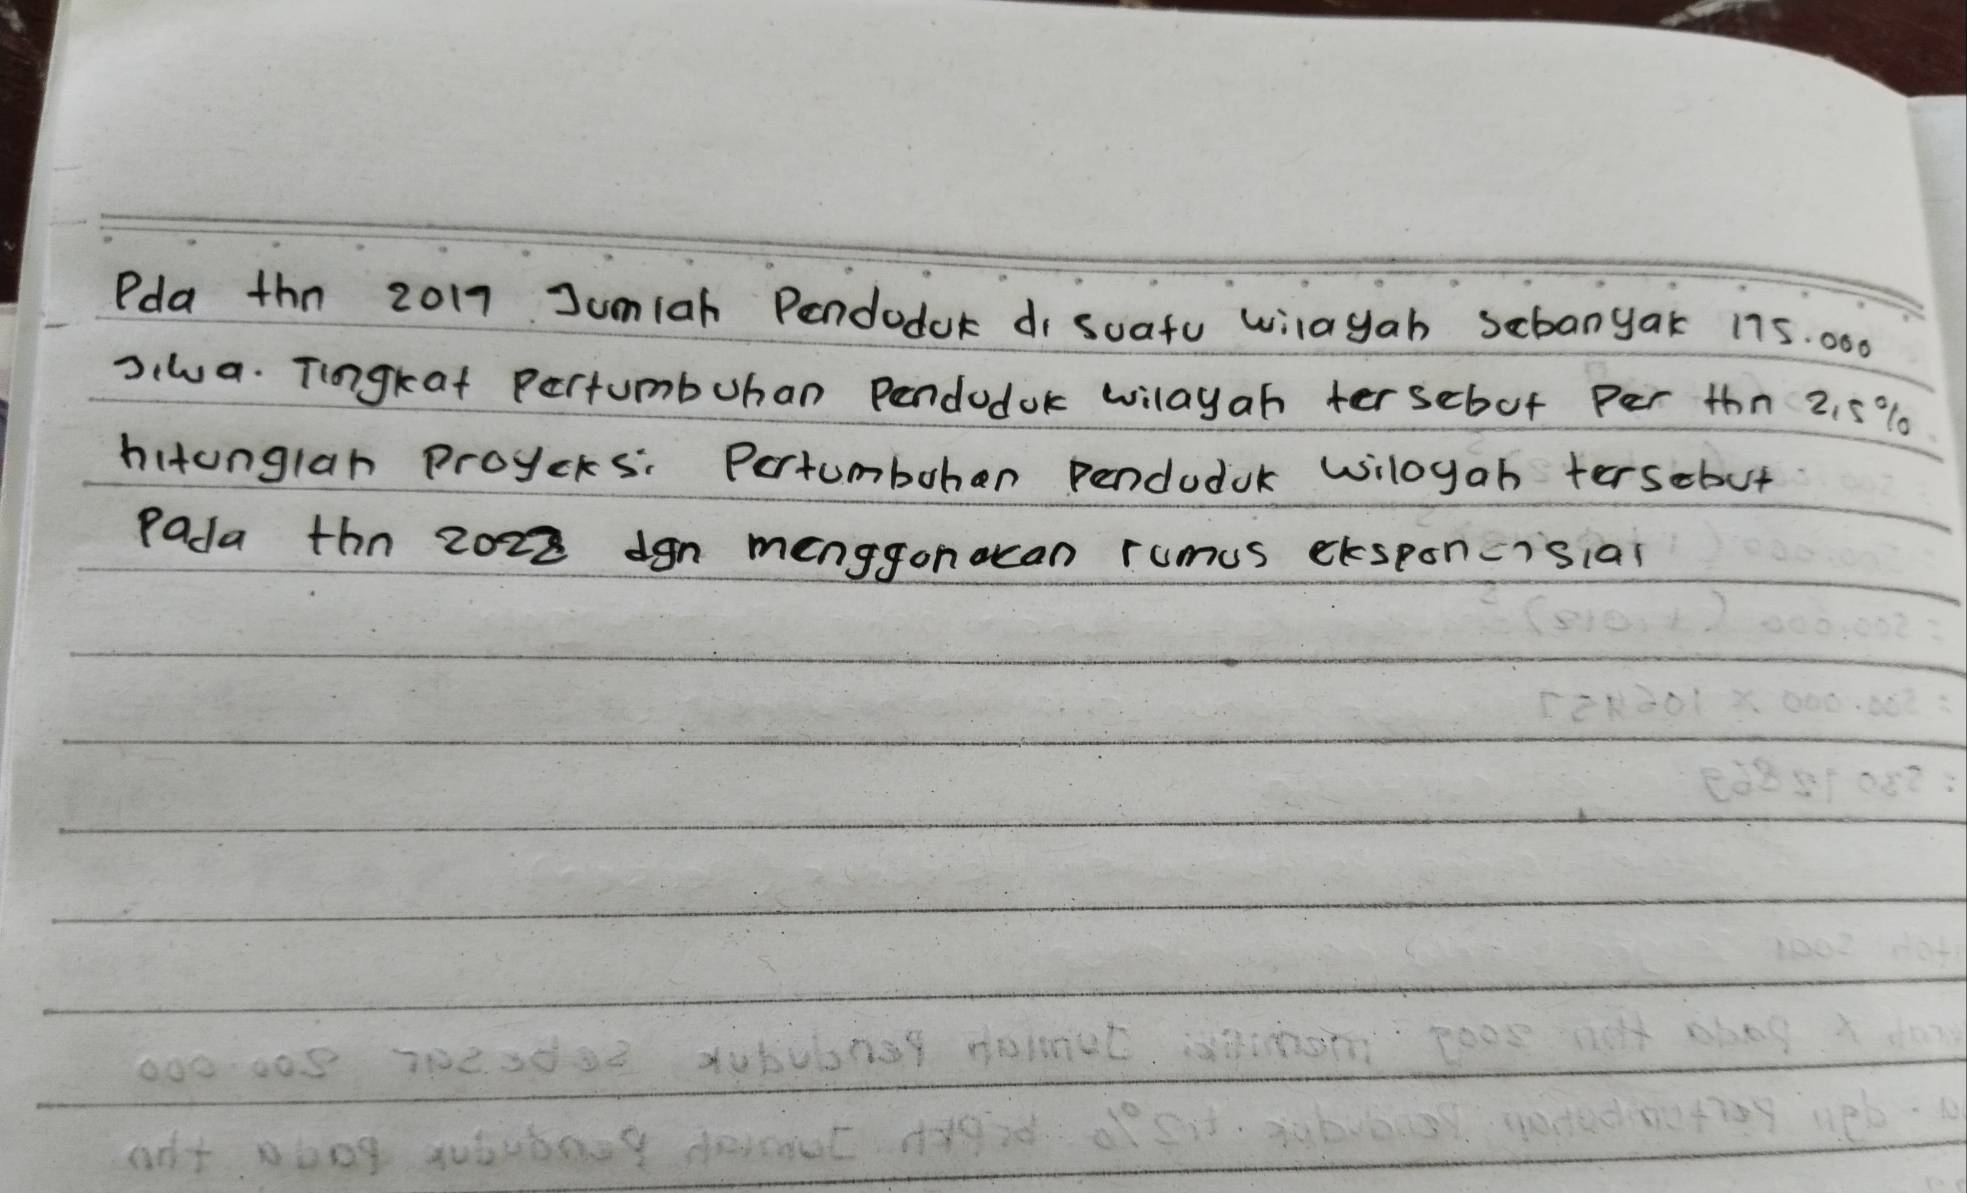 Pda thn 2019 Jumlah Penduduk di suatu wilayah sebanyak 175.000
Jiwa. Tingkat Pertumbuhan Penduduk wilayah tersebut Per thn 2,5%
hitunglah Proyeksi Pertumbuhan Penduduk wilayah tersebut
Pada thn dgn menggunakan rumus eksponensial